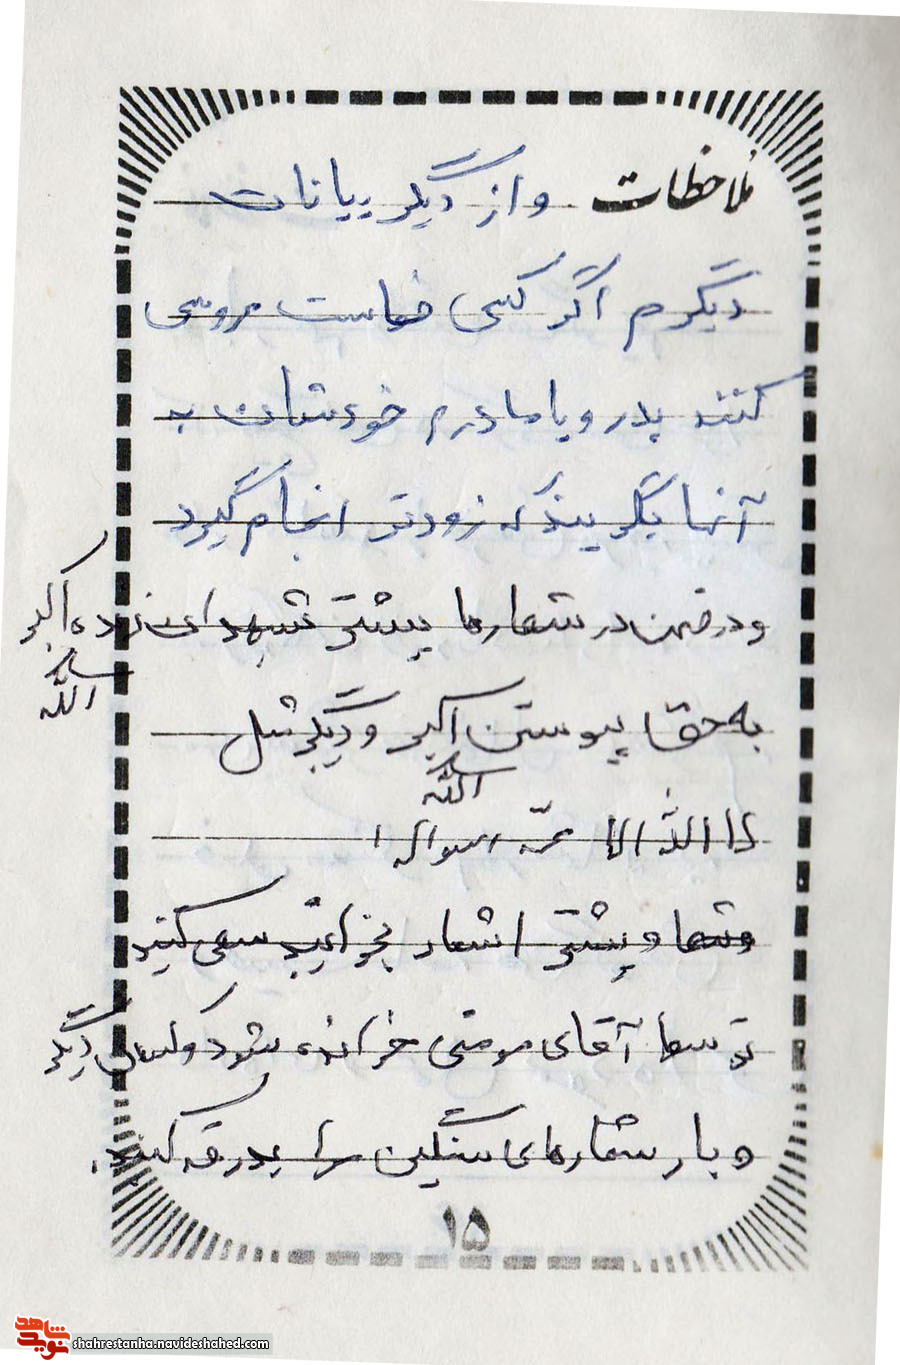 ملاحظات و از دیگر بیانات
دیگرم اگر کسی خواست عروسی
کنند پدر و یا مادرم خودشان به
آنها بگویند که زودتر انجام گیرد
و در ضمن در شعارها بیشتر شهدا زنده اند الله اکبر
به حق پیوستن الله اکبر و دیگر مثل
لا اله الا الله محمد رسول الله
و شما و بیشتر اشعار بخوانید سعی کنید
توسط آقای مومنی خوانده شود و کسان دیگر
و با شعارهای سنگین مرا بدرقه کنید.
۱۵
نوید شاهد
shahrestanha.navideshahed.com